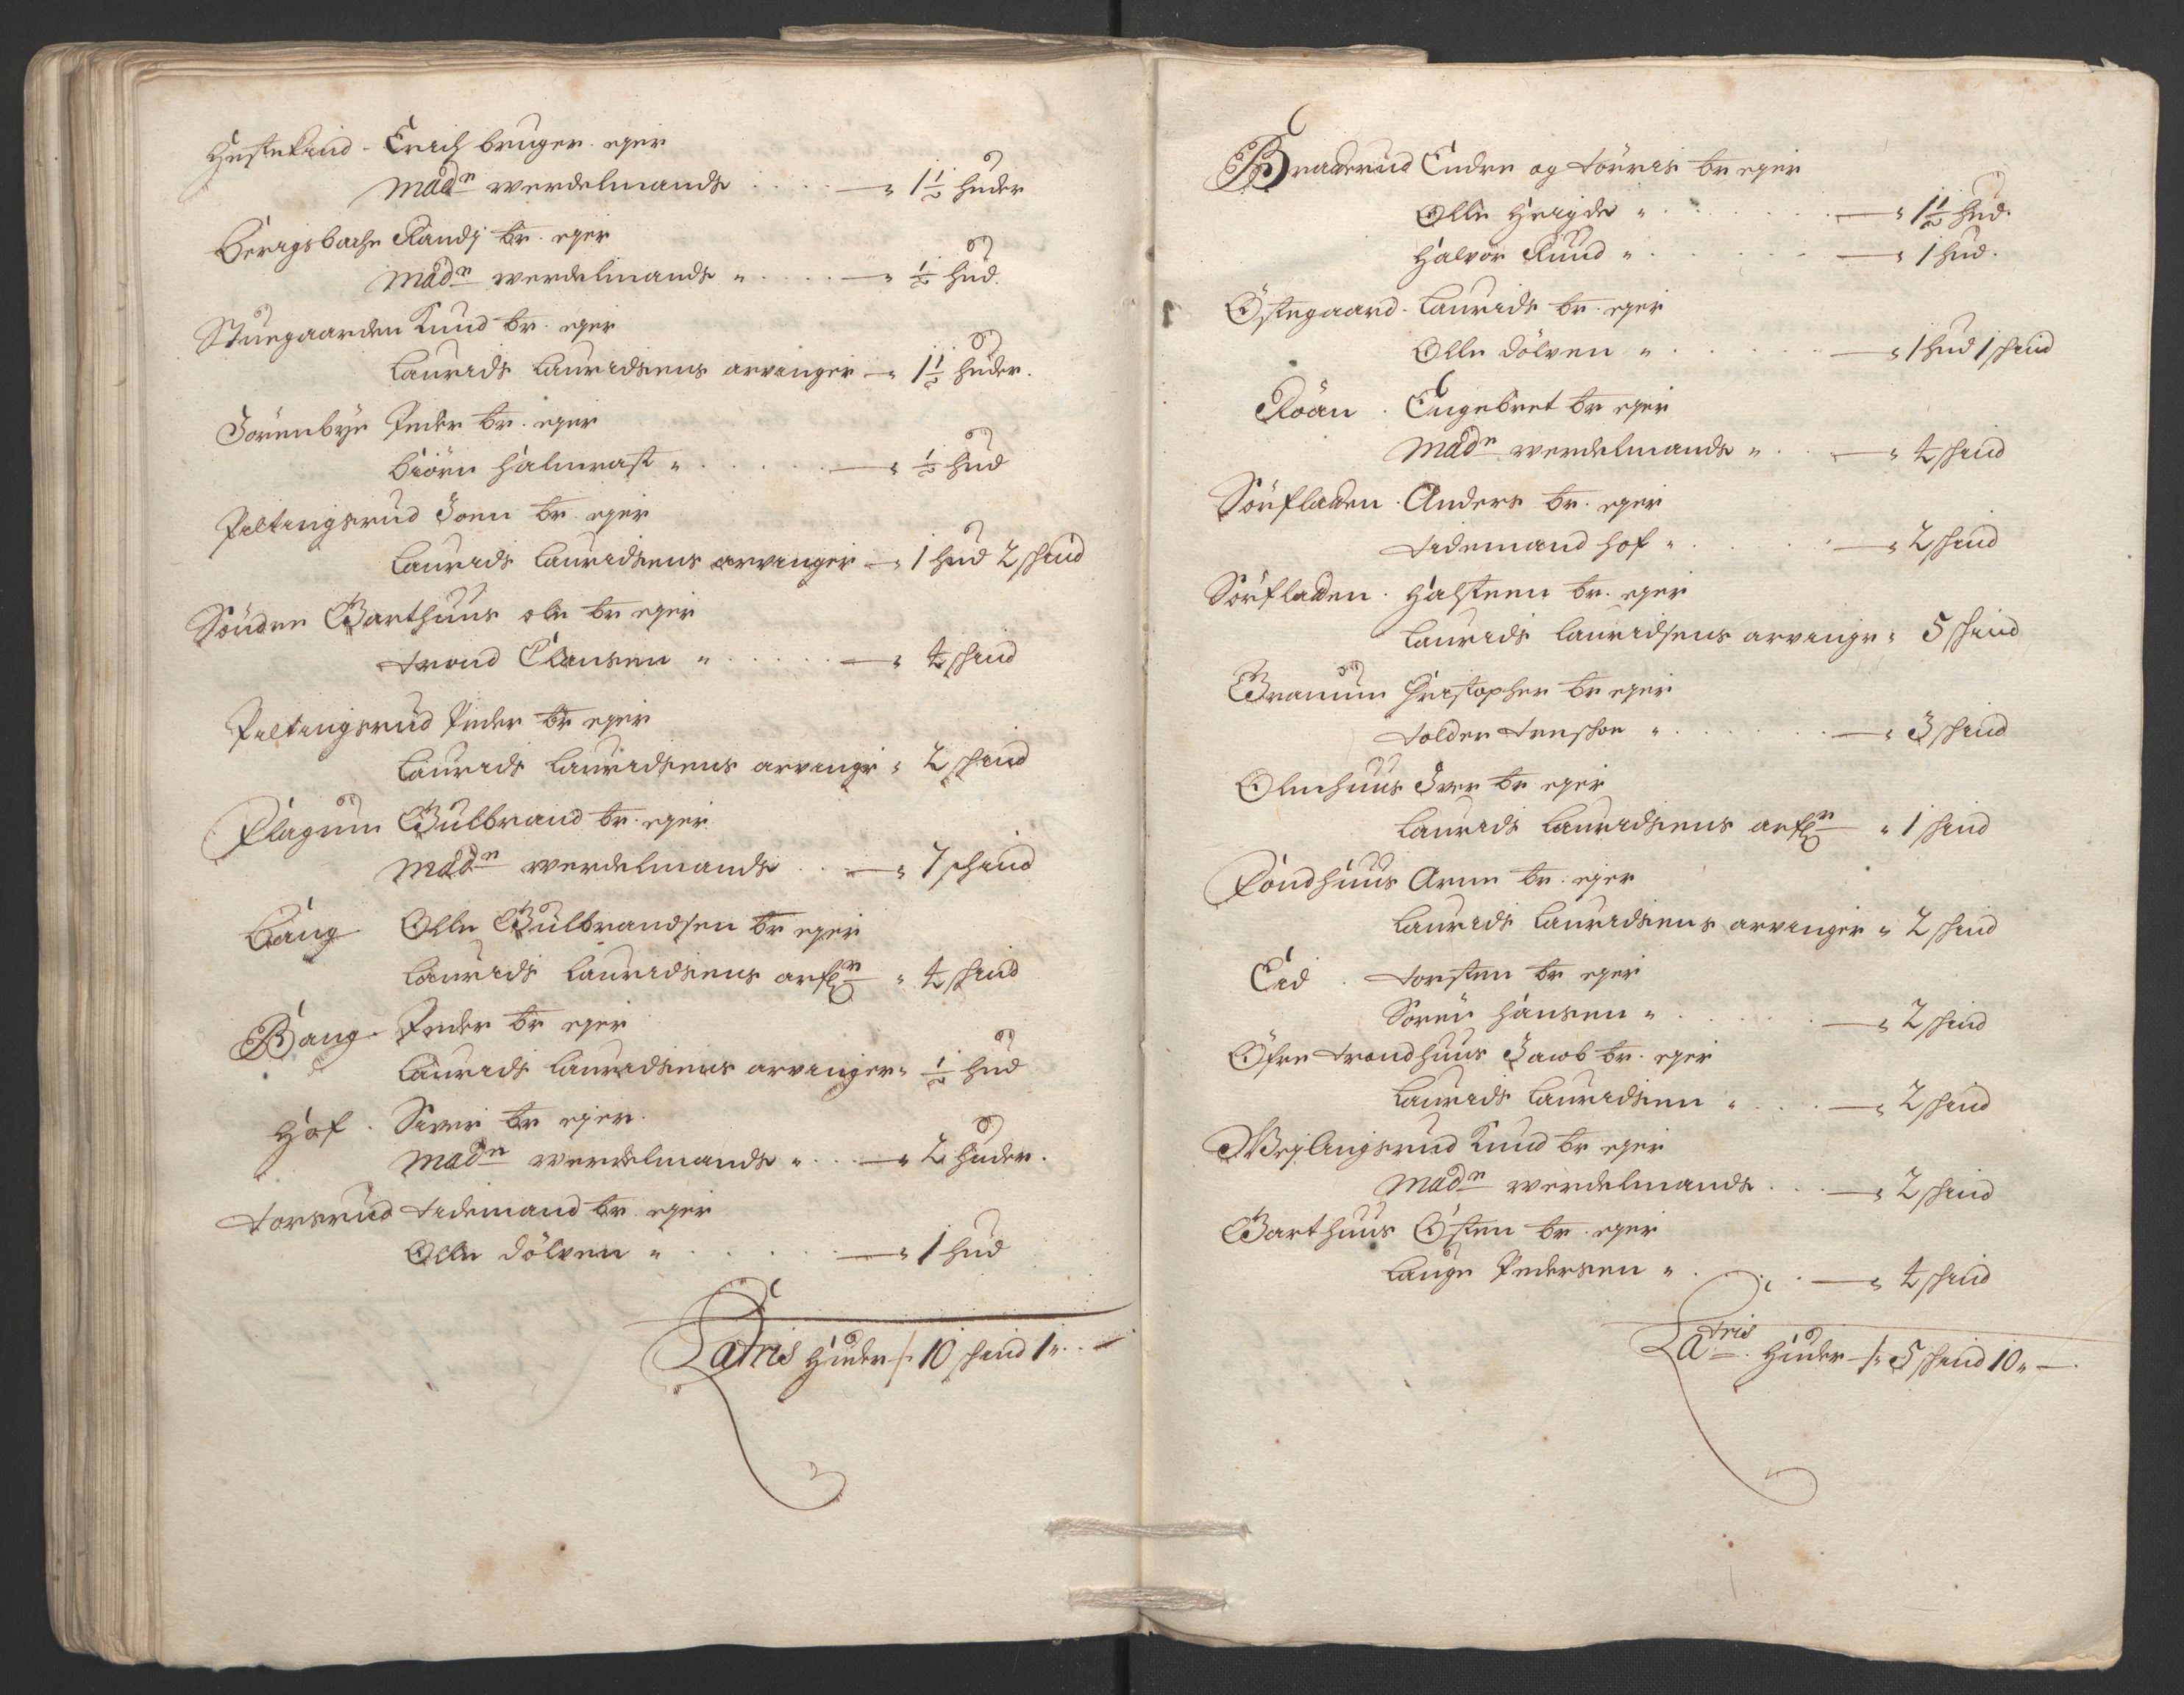 Hestekind - Erich bruger eger
Mad<sup>m</sup> werdelmands . . . . — " 1½ huder
Berigsbache Randj br. eger
Mad<sup>m</sup> werdelmands " . . . . — " ½ hud.
Stuegaarden Knud br. eger
Laurids Lauridsens arvinger — " 1½ huder.
Jörenbye Peder br. eger
Biörn Halmrast " . . . . . — " ½ hud
Piltingsrud Joen br. eger
Laurids Lauridsens arvinger — " 1 hud 2 skind
Söndre Garthuus ole br eger
Trond Clausen " . . . . . — " 4 skind
Piltingsrud Peder br eger
Laurids Lauridsens arvinger " 2 skind
Plagum Gulbrand br. eger
Mad<sup>m</sup> werdelmands . . — " 7 skind
Bang Olle Gulbrandsen br eger
Laurids Lauridsens arf " 4 skind
Bang Peder br eger
Laurids Lauridsens arvinger " ½ hud
Hof . Siver br eger.
Mad<sup>m</sup> werdelmands " . . . — " 2 huder.
Torsrud Tidemand br. eger
Olle Dölven " . . . . . — " 1 hud
Latris huder /: 10 skind 1 " . . —
Braderud Endre og Törris br eger
Olle Heigde " . . . . . — " 1½ hud.
Halvor Ruud " . . . . . — " 1 hud.
Östegaard . Laurids br. eger
Olle Dölven " . . . . . — " 1 hud 1 skind
Röän . Engebret br eger
Mad<sup>m</sup> werdelmands " . . — " 4 skind
Sörfladen . Anders br. eger
Tidemand Hof " . . . . — " 2 skind
Sörfladen . Halsteen br. eger
Laurids Lauridsens arvinger " 5 skind
Granum Christopher br eger
Tolder Treschow " . . . . . — " 3 skind
Olmhuus Iver br eger
Laurids Lauridsens arf " 1 skind
Fondhuus Arne br. eger
Laurids Lauridsens arvinger " 2 skind
Eid . Torsten br eger
Sören Hansen " . . . . . — " 2 skind
Öfre Trondhuus Jacob br. eger
Laurids Lauridsen " . . . — " 2 skind
Weglingsrud Knud br eger
Mad<sup>m</sup> werdelmands . . . — " 2 skind
Garthuus Östen br. eger
Lauge Pedersen " . . . . — " 4 skind
La<sup>tris</sup>. huder /: 5 skind 10 " —.